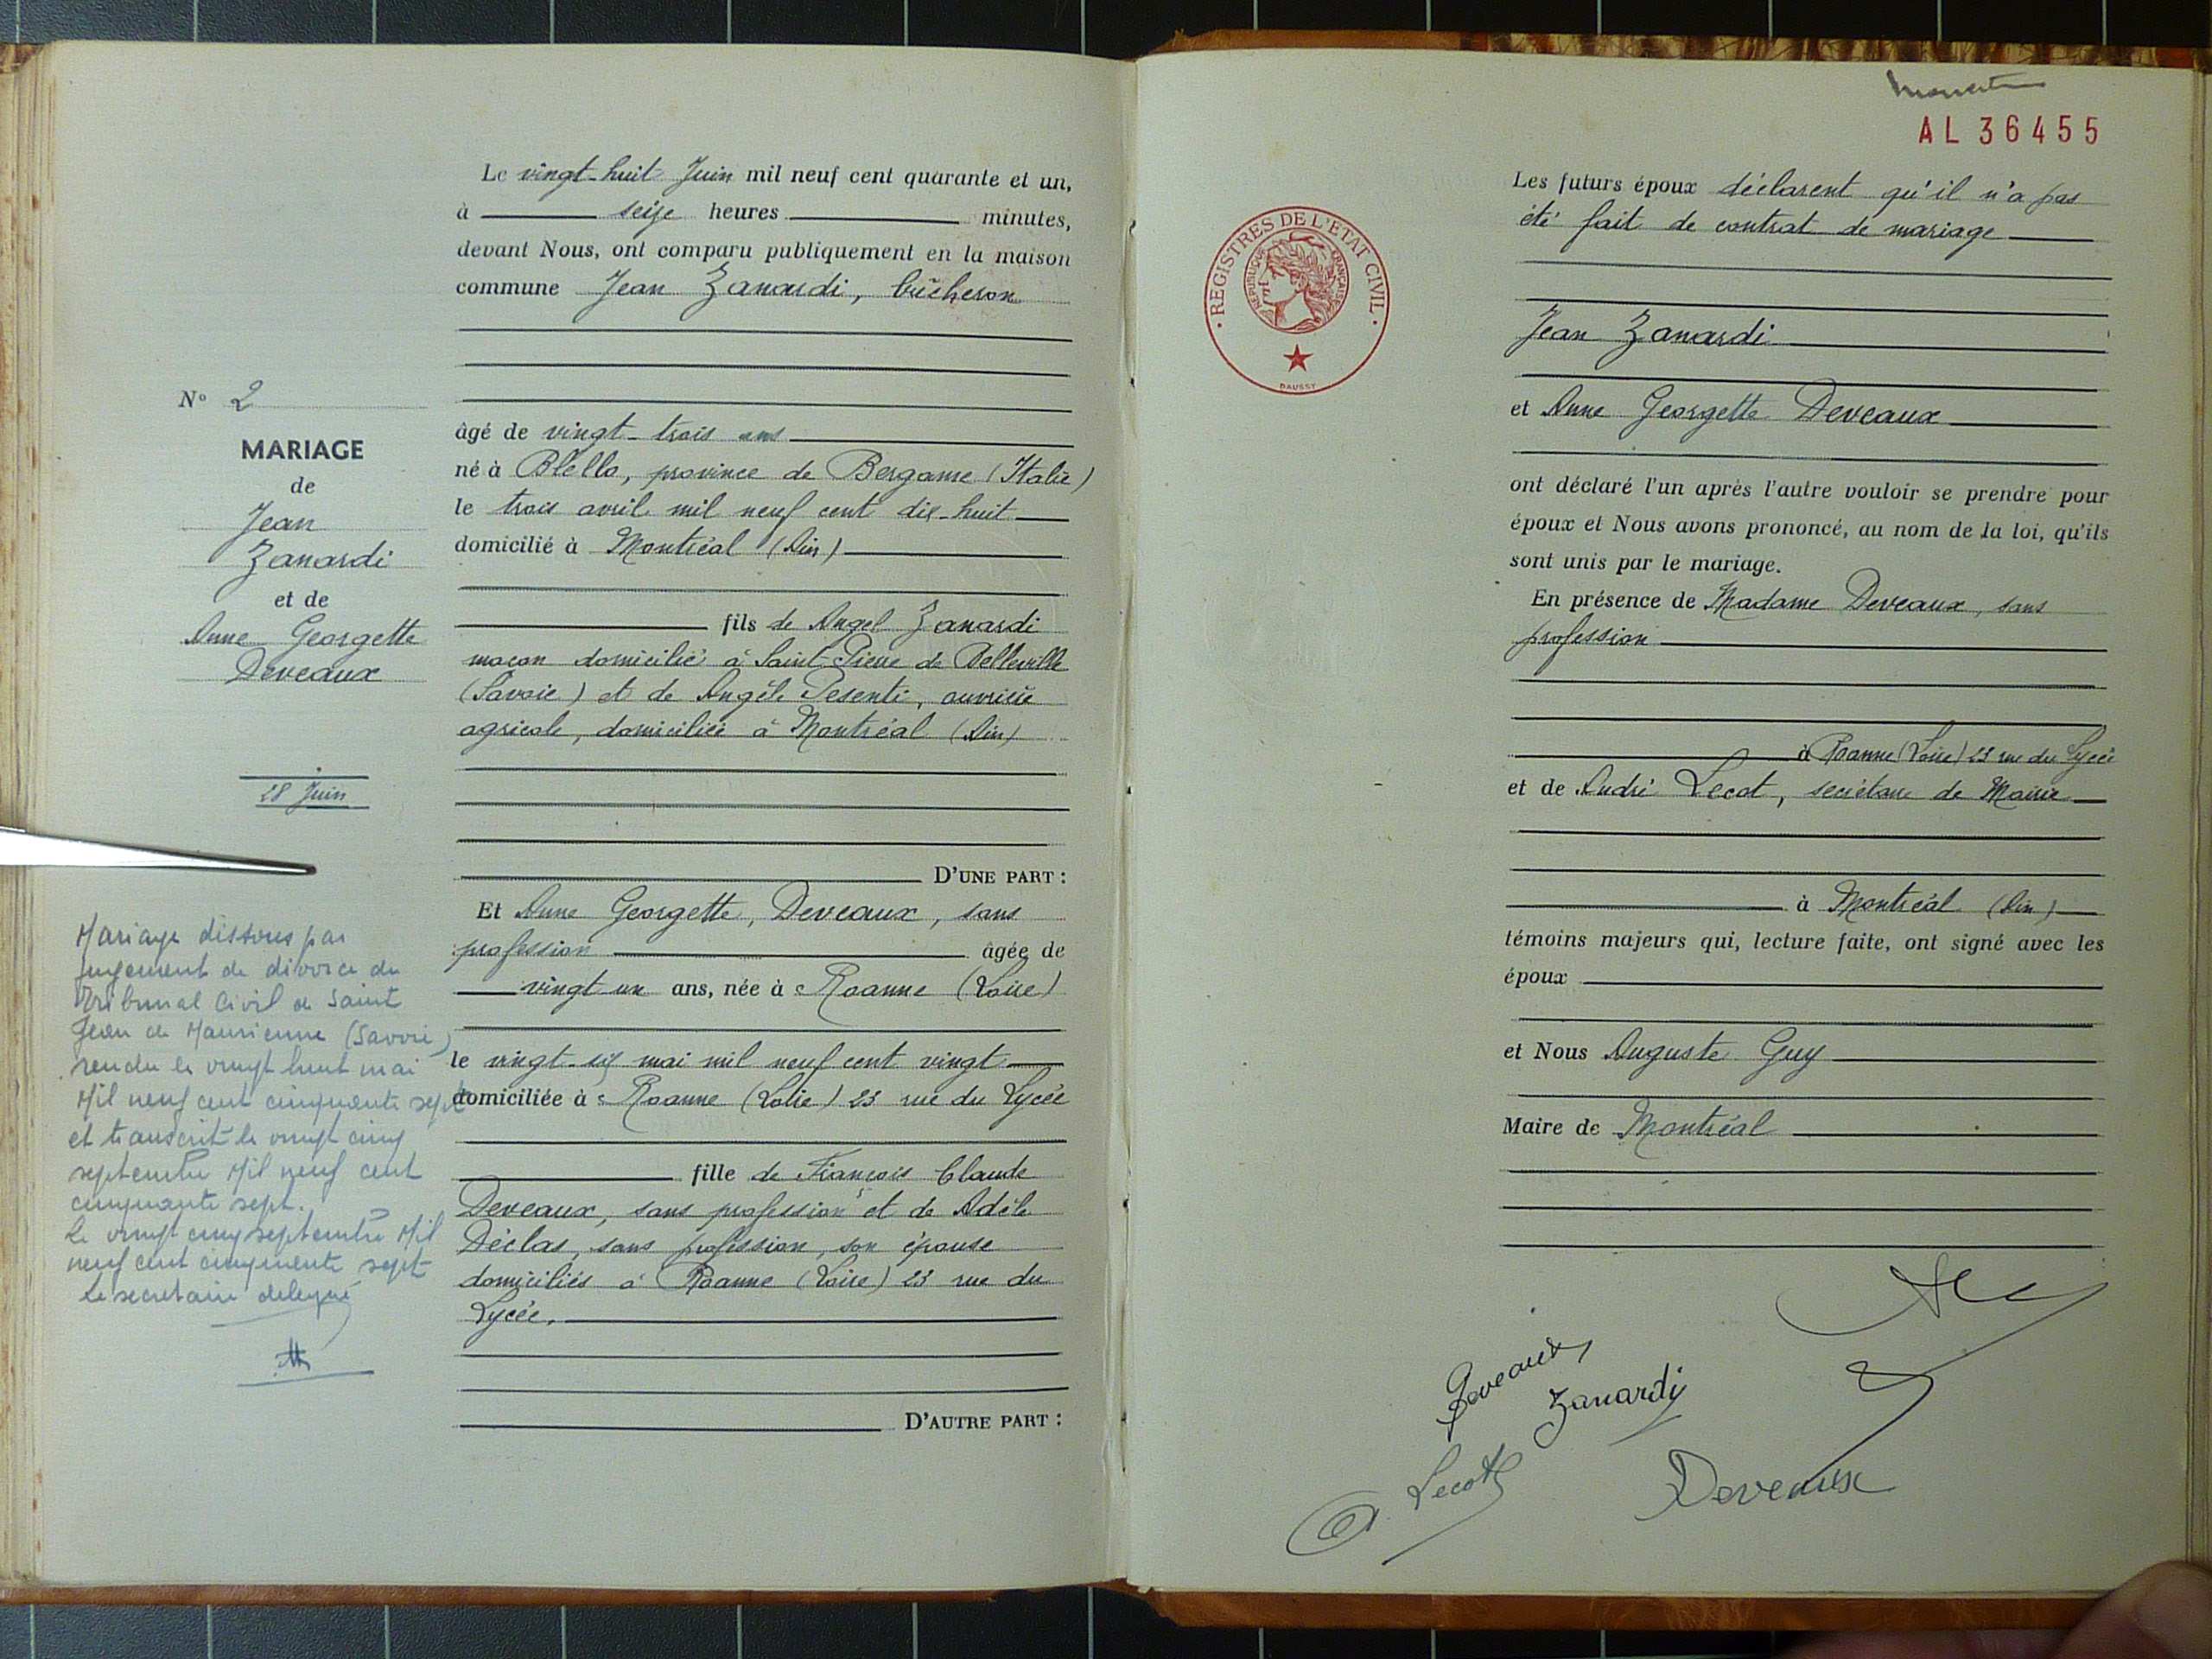 N° 2
MARIAGE
de
Jean
Zanardi
et de
Anne Georgette
Deveaux
28 Juin
Mariage dissous par
jugement de divorce du
Tribunal Civil de Saint
Jean de Maurienne (Savoie)
rendu le vingt huit mai
Mil neuf cent cinquante sept
et transcrit le vingt cinq
septembre Mil neuf cent
cinquante sept.
Le vingt cinq septembre Mil
neuf cent cinquante sept
Le secretaire delegué
Le vingt-huit Juin mil neuf cent quarante et un,
à seize heures minutes,
devant Nous, ont comparu publiquement en la maison
commune Jean Zanardi, bûcheron
âgé de vingt-trois ans
né à Blello, province de Bergame (Italie)
le trois avril mil neuf cent dix-huit
domicilié à Montréal (Ain)
fils de Angel Zanardi
maçon domicilié à Saint-Pierre de Belleville
(Savoie) et de Angèle Pesenti, ouvrière
agricole, domiciliée à Montréal (Ain)
D'UNE PART :
Et Anne Georgette, Deveaux, sans
profession âgée de
vingt un ans, née à Roanne (Loire)
le vingt-six mai mil neuf cent vingt
domiciliée à Roanne (Loire) 23 rue du Lycée
fille de François Claude
Deveaux, sans profession et de Adèle
Déclas, sans profession, son épouse
domiciliés à Roanne (Loire) 23 rue du
Lycée.
D'AUTRE PART :
AL 36455
REGISTRES DE L'ÉTAT CIVIL
RÉPUBLIQUE FRANÇAISE
DAUSSY
Les futurs époux déclarent qu'il n'a pas
été fait de contrat de mariage
Jean Zanardi
et Anne Georgette Deveaux
ont déclaré l'un après l'autre vouloir se prendre pour
époux et Nous avons prononcé, au nom de la loi, qu'ils
sont unis par le mariage.
En présence de Madame Deveaux, sans
profession
à Roanne (Loire) 23 rue du Lycée
et de André Lecot, secrétaire de Mairie
à Montréal (Ain)
témoins majeurs qui, lecture faite, ont signé avec les
époux
et Nous Auguste Guy
Maire de Montréal
Deveaux
Zanardi
A. Lecot
Deveaux